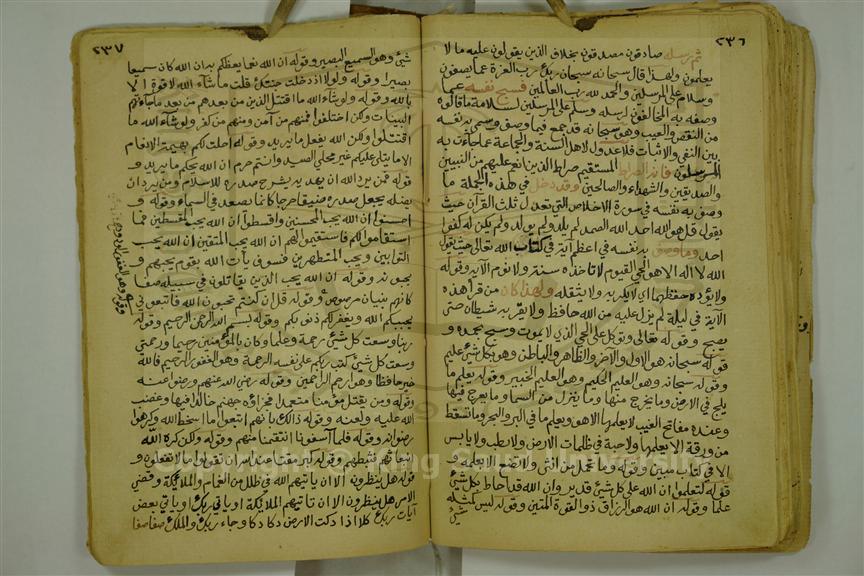 ٢٣٦
ثم رسله صادقون مصدقون بخلاف الذين يقولون عليه ما لا
يعلمون ولهذا قال سبحانه سبحان ربك رب العزة عما يصفون
وسلام على المرسلين والحمد لله رب العالمين فسبح نفسه عما
وصفه به المخالفون لرسله وسلم على المرسلين لسلامة ما قالوه
من النقص والعيب وهو سبحانه قد جمع فيما وصف وسمى به نفسه
بين النفي والاثبات فلا عدول لاهل السنة والجماعة عما جاءت به
المرسلون فانه الصراط المستقيم صراط الذين انعم عليهم من النبيين
والصديقين والشهداء والصالحين وقد دخل في هذه الجملة ما
وصف به نفسه في سورة الاخلاص التي تعدل ثلث القرآن حيث
يقول قل هو الله احد الله الصمد لم يلد ولم يولد ولم يكن له كفوا
احد وما وصف به نفسه في اعظم آية في كتاب الله تعالى حيث يقول
الله لا اله الا هو الحي القيوم لا تاخذه سنة ولا نوم الآية وقوله
ولا يؤده حفظهما اي لا يكربه ولا يثقله ولهذا كان من قرأ هذه
الآية في ليلة لم يزل عليه من الله حافظ ولا يقربه شيطان حتى
يصبح وقوله تعالى وتوكل على الحي الذي لا يموت وسبح بحمده و
قوله سبحانه هو الاول والآخر والظاهر والباطن وهو بكل شئ عليم
وقوله سبحانه وهو العليم الحكيم وهو العليم الخبير وقوله يعلم ما
يلج في الارض وما يخرج منها وما ينزل من السما وما يعرج فيها
وعنده مفاتح الغيب لا يعلمها الا هو ويعلم ما في البر والبحر وما تسقط
من ورقة الا يعلمها ولا حبة في ظلمات الارض ولا رطب ولا يابس
الا في كتاب مبين وقوله وما تحمل من انثى ولا تضع الا بعلمه و
قوله لتعلموا ان الله على كل شئ قدير وان الله قد احاط بكل شئ
علما وقوله ان الله هو الرزاق ذو القوة المتين وقوله ليس كمثله
شئ
٢٣٧
شئ وهو السميع البصير وقوله ان الله نعما يعظكم به ان الله كان سميعا
بصيرا وقوله ولولا اذ دخلت جنتك قلت ما شاء الله لا قوة الا
بالله وقوله ولو شاء الله ما اقتتل الذين من بعدهم من بعد ما جاءتهم
البينات ولكن اختلفوا فمنهم من آمن ومنهم من كفر ولو شاء الله ما
اقتتلوا ولكن الله يفعل ما يريد وقوله احلت لكم بهيمة الانعام
الا ما يتلى عليكم غير محلي الصيد وانتم حرم ان الله يحكم ما يريد و
قوله فمن يرد الله ان يهديه يشرح صدره للاسلام ومن يرد ان
يضله يجعل صدره ضيقا حرجا كانما يصعد في السماء وقوله و
احسنوا ان الله يحب المحسنين واقسطوا ان الله يحب المقسطين فما
استقاموا لكم فاستقيموا لهم ان الله يحب المتقين ان الله يحب
التوابين ويحب المتطهرين فسوف يأت الله بقوم يحبهم و
يحبونه وقوله ان الله يحب الذين يقاتلون في سبيله صفا
كانهم بنيان مرصوص وقوله قل ان كنتم تحبون الله فاتبعوني
يحببكم الله ويغفر لكم ذنوبكم وقوله بسم الله الرحمن الرحيم وقوله
ربنا وسعت كل شئ رحمة وعلما وكان بالمؤمنين رحيما ورحمتي
وسعت كل شئ كتب ربكم على نفسه الرحمة وهو الغفور الرحيم فالله
خير حافظا وهو ارحم الراحمين وقوله رضي الله عنهم ورضوا عنه
وقوله ومن يقتل مؤمنا متعمدا فجزاؤه جهنم خالدا فيها وغضب
الله عليه ولعنه وقوله ذالك بانهم اتبعوا ما اسخط الله وكرهوا
رضوانه وقوله فلما آسفونا انتقمنا منهم وقوله ولكن كره الله
انبعاثهم فثبطهم وقوله كبر مقتا عند الله ان تقولوا ما لا تفعلون و
قوله هل ينظرون الا ان ياتيهم الله في ظلل من الغمام والملائكة وقضي
الامر هل ينظرون الا ان تاتيهم الملائكة او ياتي ربك او ياتي بعض
آيات ربك كلا اذا دكت الارض دكا دكا وجاء ربك والملك صفا صفا
وقوله وهو الغفور الودود
Copyright © King Saud University